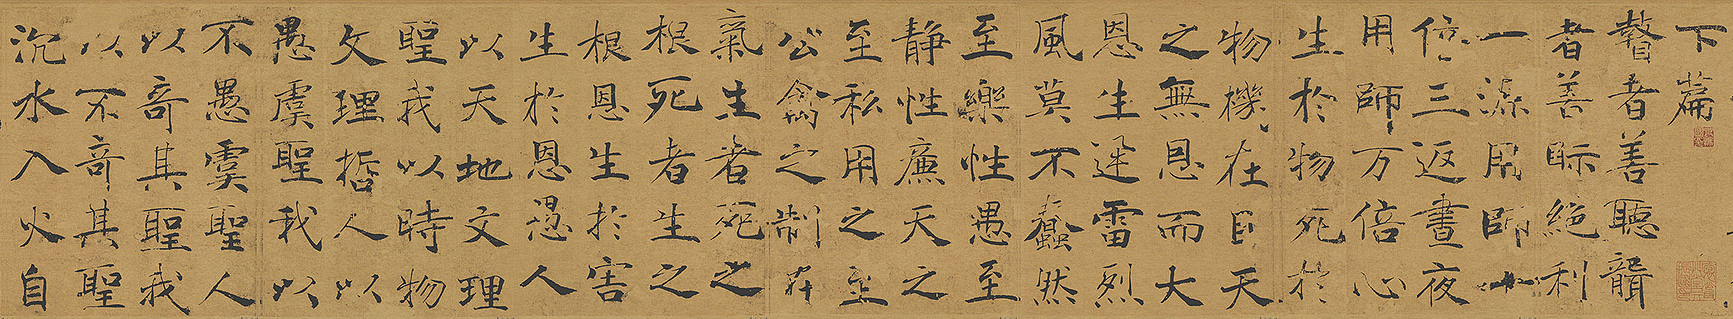 下篇
瞽者善聽聾
者善眎絕利
一源用師十
倍三返晝夜
用師万倍心
生於物死於
物機在目天
之無恩而大
恩生迅雷烈
風莫不蠢然
至樂性愚至
靜性廉天之
至私用之至
公禽之制在
氣生者死之
根死者生之
根恩生於害
生於恩愚人
以天地文理
聖我以時物
文理哲人以
愚虞聖我以
不愚虞聖人
以奇其聖我
以不奇其聖
沉水入火自